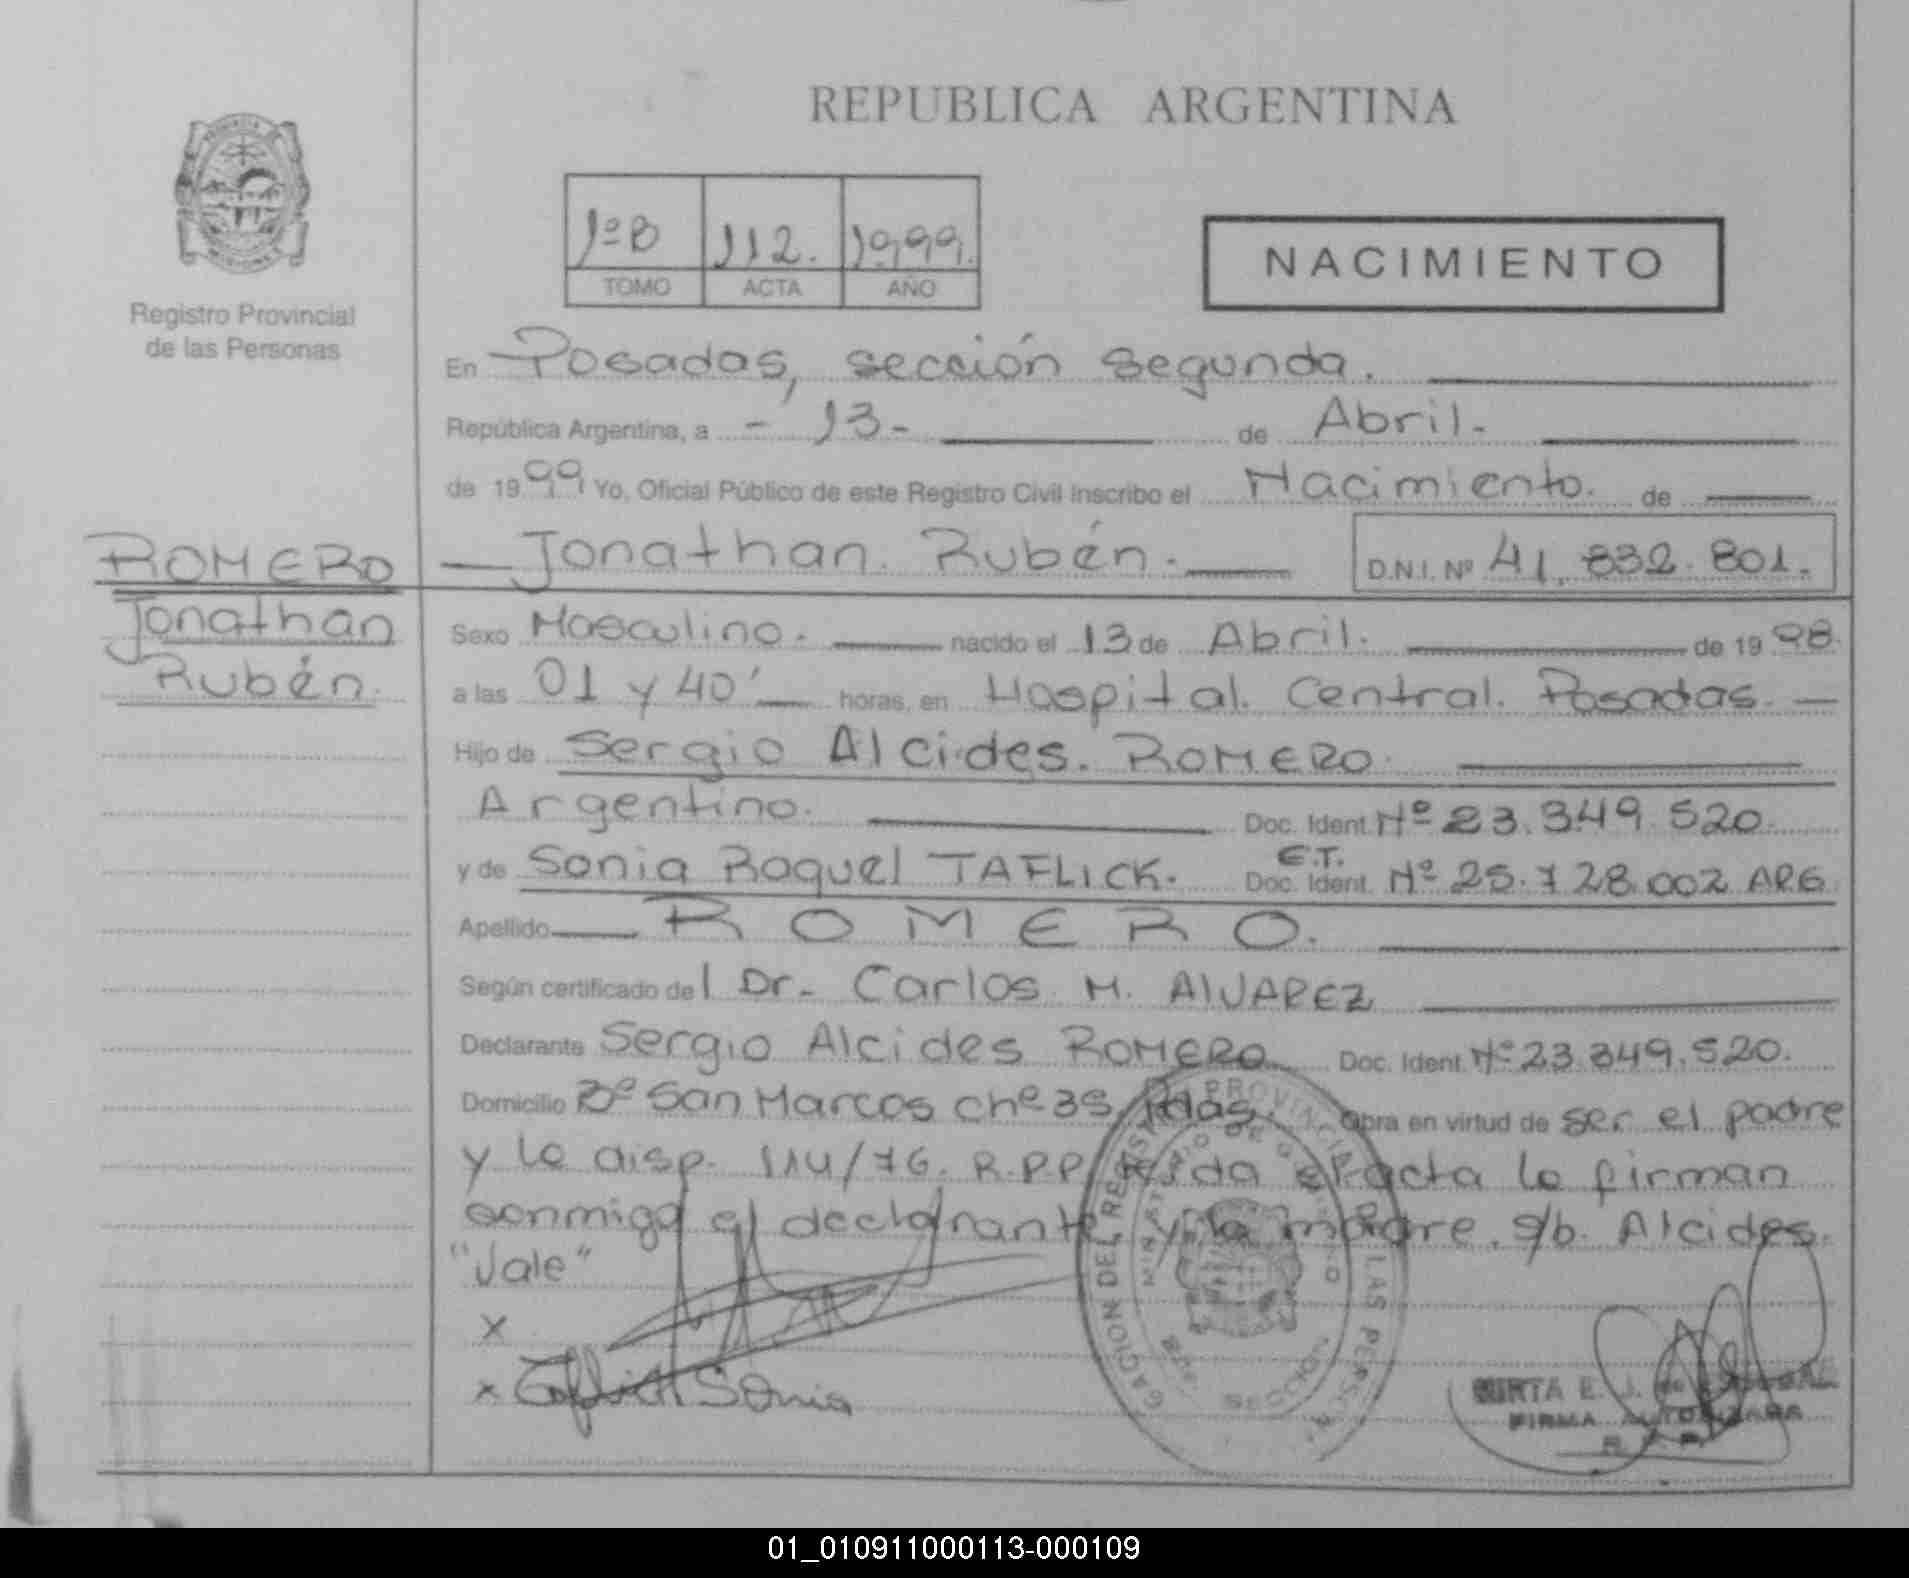 REPUBLICA ARGENTINA
Registro Provincial
de las Personas
1º B 112. 1999.
TOMO ACTA AÑO
NACIMIENTO
En Posadas, sección segunda.
República Argentina, a - 13 - de Abril.
de 1999 Yo, Oficial Público de este Registro Civil inscribo el Nacimiento. de
Jonathan. Rubén. D.N.I. Nº 41.832.801.
ROMERO
Jonathan
Rubén.
Sexo Masculino. nacido el 13 de Abril. de 1998.
a las 01 y 40' horas, en Hospital. Central. Posadas.
Hijo de Sergio Alcides. ROMERO.
Argentino. Doc. Ident. Nº 23.349.520.
y de Sonia Raquel TAFLICK. E.T. Doc. Ident. Nº 25.728.002 ARG.
Apellido ROMERO.
Según certificado del Dr. Carlos M. AlVAREZ
Declarante Sergio Alcides ROMERO Doc. Ident. Nº 23.349.520.
Domicilio Bº San Marcos chº 39 Pdas. Obra en virtud de ser el padre
y la disp. 114/76. R.P.P. leída el acta la firman
conmigo el declarante y la madre. s/b. Alcides.
"Vale"
x
x Taflick Sonia
MINISTERIO DE GOBIERNO
SECCION
MIRTA E. J. de
FIRMA AUTORIZADA
R. P. P.
01_010911000113-000109